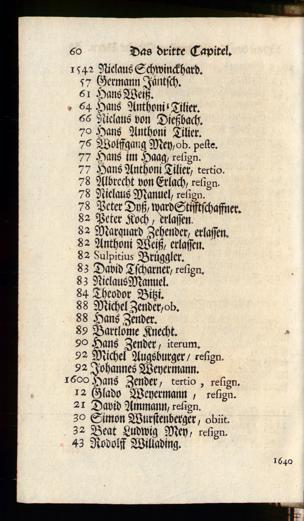 60 Das dritte Capitel.
1542 Niclaus Schwinckhard.
57 Germann Jäntsch.
61 Hans Weiß.
64 Hans Anthoni Tilier.
66 Niclaus von Dießbach.
70 Hans Anthoni Tilier.
76 Wolffgang Mey, ob. peste.
77 Hans im Haag, resign.
77 Hans Anthoni Tilier, tertio.
78 Albrecht von Erlach, resign.
78 Niclaus Manuel, resign.
78 Peter Dyß, ward Stifftschaffner.
82 Peter Koch, erlassen.
82 Marquard Zehender, erlassen.
82 Anthoni Weiß, erlassen.
82 Sulpitius Brüggler.
83 David Tscharner, resign.
83 Niclaus Manuel.
84 Theodor Bitzi.
88 Michel Zender, ob.
88 Hans Zender.
89 Bartlome Knecht.
90 Hans Zender, iterum.
92 Michel Augsburger, resign.
92 Johannes Weyermann.
1600 Hans Zender, tertio, resign.
12 Glado Weyermann, resign.
21 David Ammann, resign.
30 Simon Wurstenberger, obiit.
32 Beat Ludwig Mey, resign.
43 Rodolff Willading.
1640